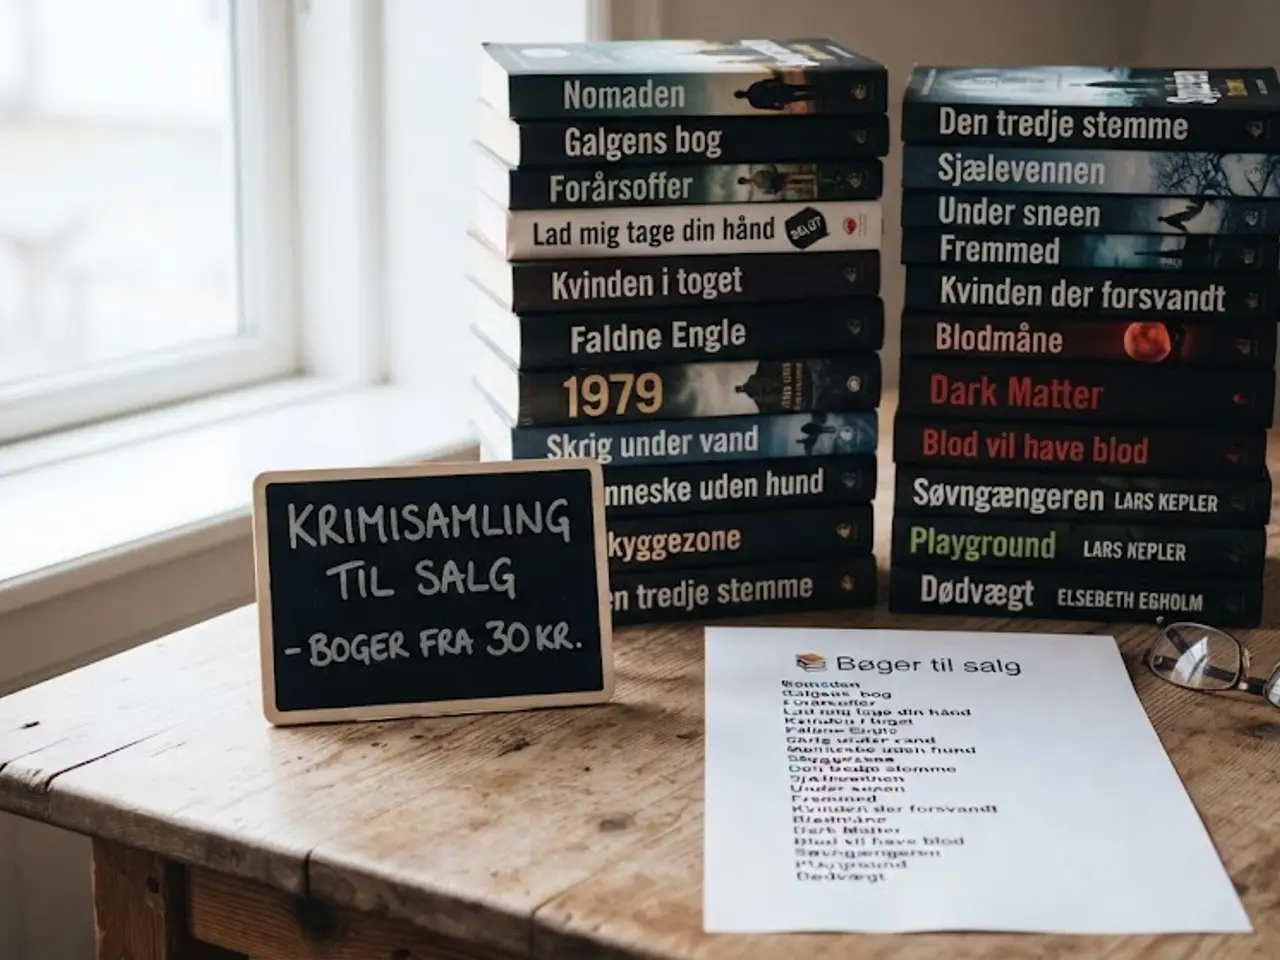 Nomaden
Galgens bog
Forårsoffer
Lad mig tage din hånd
Kvinden i toget
Faldne Engle
1979
Skrig under vand
nneske uden hund
kyggezone
en tredje stemme
Den tredje stemme
Sjælevennen
Under sneen
Fremmed
Kvinden der forsvandt
Blodmåne
Dark Matter
Blod vil have blod
Søvngængeren LARS KEPLER
Playground LARS NEPLER
Dødvægt ELSEBETH EGHOLM
KRIMISAMLING
TIL SALG
- BOGER FRA 30 KR.
Bøger til salg
Nomaden
Galgens bog
Forårsoffer
Lad mig tage din hånd
Kvinden i toget
Faldne Engle
under vand
Menneske uden hund
Den tredje stemme
Sjælevennen
Under sneen
Fremmed
Kvinden der forsvandt
Blodmåne
Dark Matter
Blod vil have blod
Søvngængeren
Playground
Dødvægt